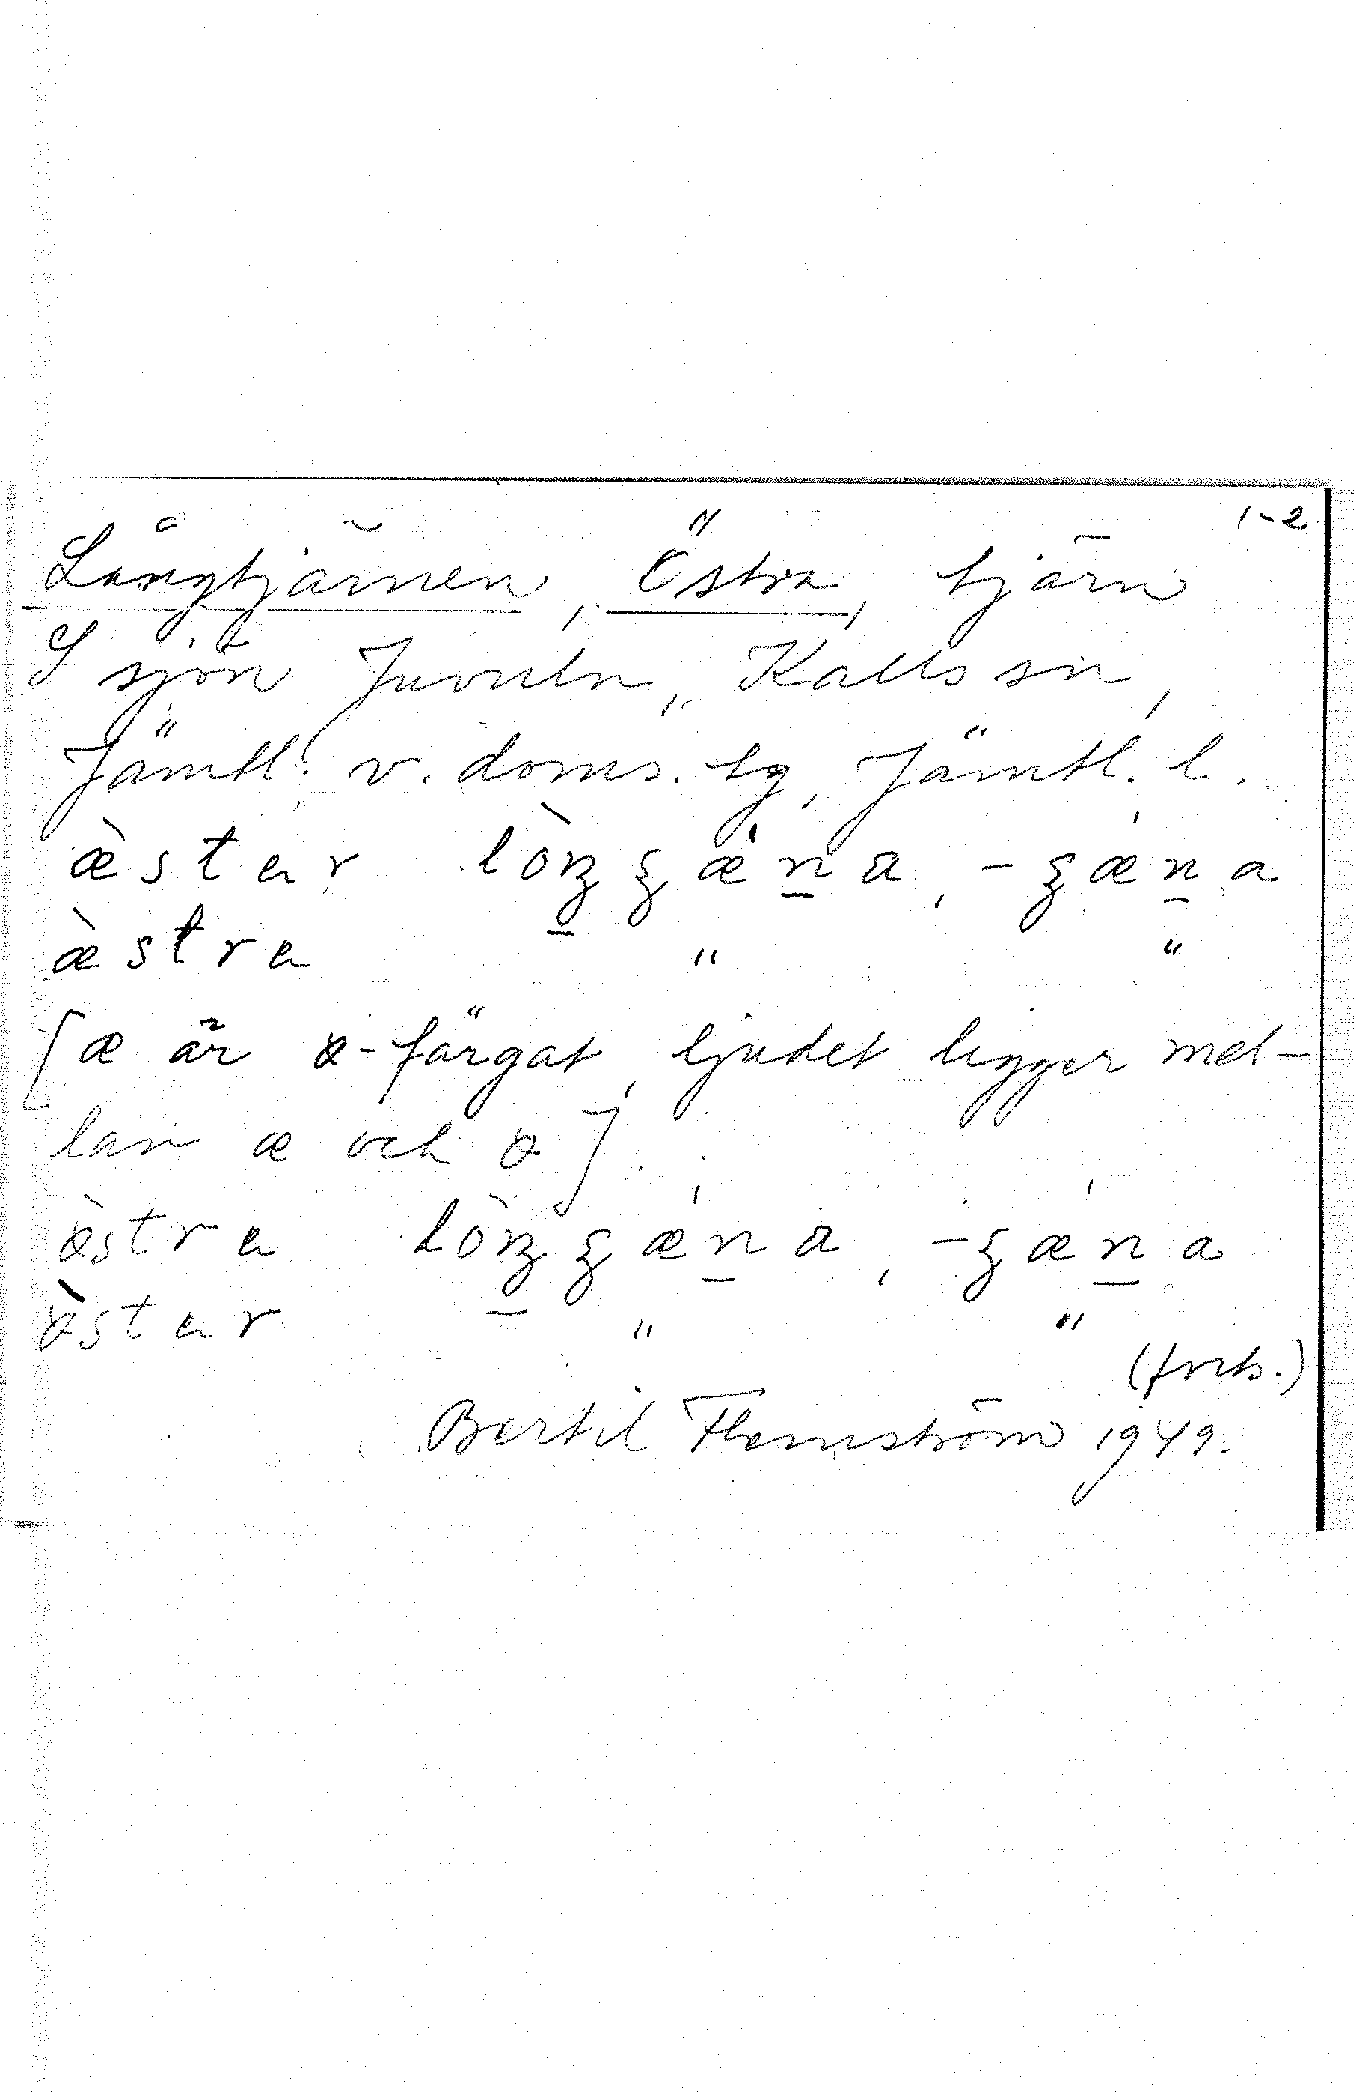 1-2.
Långtjärnen, Östra, tjärn
S sjön Juvuln, Kalls sn,
Jämtl. v. doms. tg, Jämtl. l.
æ̀star
æ̀stra " "
[æ är ꝍ-färgat, ljudet ligger mel-
lan æ och ꝍ].
ꝍ̀stra
ꝍ̀star " "
(forts.)
Bertil Flemström 1949.